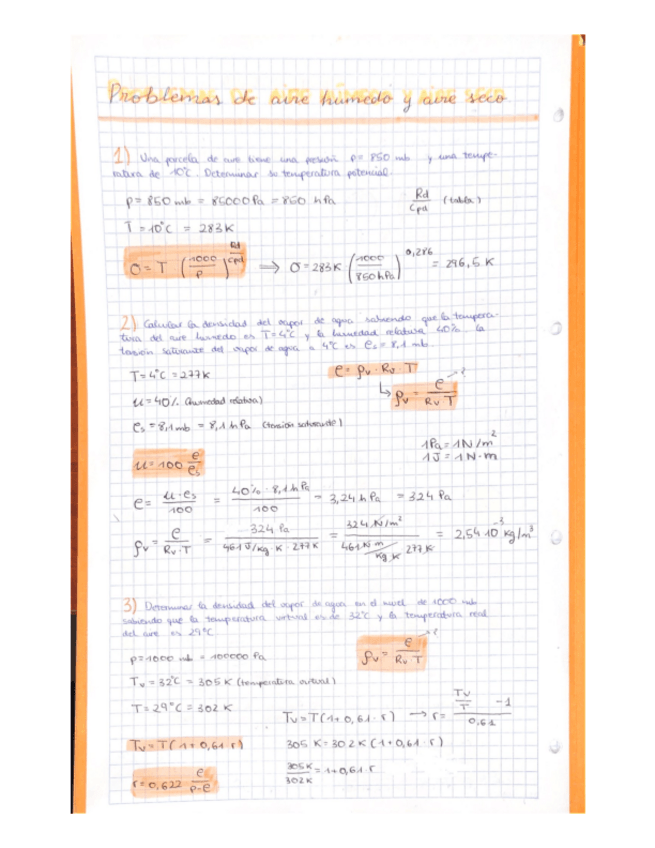 Problemas de aire húmedo y aire seco.
1) Una parcela de aire tiene una presión p= 850 mb y una tempe-
ratura de 10°C. Determinar su temperatura potencial.
p= 850 mb = 85000 Pa = 850 hPa
Rd/Cpd (tabla)
T = 10°C = 283 K
σ = T (1000/p)^(Rd/Cpd) ⟹ σ = 283K (1000/850 hPa)^0,286 = 296,5 K
2) Calcular la densidad del vapor de agua sabiendo que la tempera-
tura del aire húmedo es T=4°C y la humedad relativa 40%. La
tensión saturante del vapor de agua a 4°C es es = 8,1 mb.
T=4°C = 277K
e = ρv · Rv · T
↳ ρv = e/(Rv T) ?
u=40% (humedad relativa)
es = 8,1 mb = 8,1 hPa (tensión saturante)
1Pa = 1N/m²
1J = 1N·m
u=100 e/es
e= (u·es)/100 = (40% · 8,1 hPa)/100 = 3,24 hPa = 324 Pa
ρv = e/(Rv·T) = 324 Pa/(461 J/kg·K · 277K) = (324 N/m²)/(461 N·m/kg·K 277K) = 2,54·10⁻³ kg/m³
3) Determinar la densidad del vapor de agua en el nivel de 1000 mb
sabiendo que la temperatura virtual es de 32°C y la temperatura real
del aire es 29°C
ρv = e/(Rv T) ?
p=1000 mb = 100000 Pa
Tv = 32°C = 305 K (temperatura virtual)
T= 29°C = 302 K
Tv = T(1+0,61·r) → r= (Tv/T -1)/0,61
Tv=T(1+0,61·r)
305 K= 302K (1+0,61·r)
305K/302K = 1+0,61·r
r=0,622 e/(p-e)